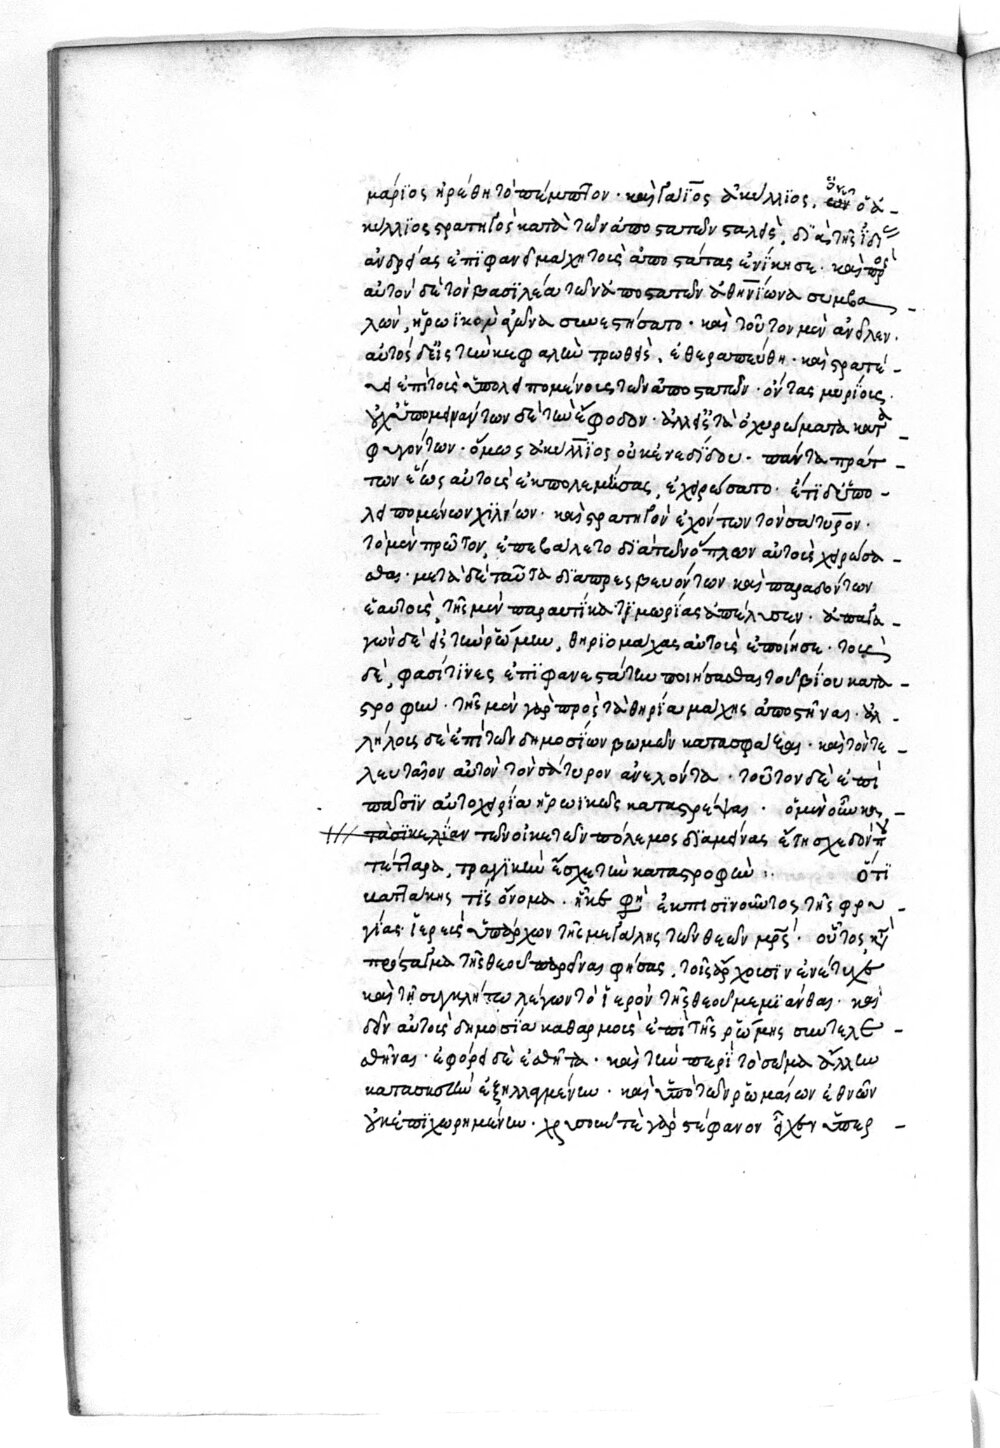 μάριος ἡρέθη τὸ πέμπτον· καὶ γάϊος ἀκύλλιος, ὧν ὁ ἀ-
κύλλιος στρατηγὸς κατὰ τῶν ἀποστατῶν σταλεὶς, διὰ τῆς ἰδί
ἀνδρείας ἐπιφανεῖ μάχη τοὺς ἀποστάτας ἐνίκησε· καὶ πρὸς
αὐτὸν δὲ τὸν βασιλέα τῶν ἀποστατῶν ἀθηνίωνα συμβα-
λὼν, ἡρωϊκὸν ἀγῶνα συνεστήσατο· καὶ τοῦτον μὲν ἀνεῖλεν·
αὐτὸς δὲ εἰς τὴν κεφαλὴν τρωθεὶς, ἐθεραπεύθη· καὶ στρατεύ-
ει ἐπὶ τοὺς ὑπολειπομένους τῶν ἀποστατῶν· ὄντας μυρίους·
οὐχ ὑπομεινάντων δὲ τὴν ἔφοδον· ἀλλ' εἰς τὰ ὀχυρώματα κατα-
φυγόντων· ὅμως ἀκύλλιος οὐκ ἐνεδίδου· πάντα πράτ-
των ἕως αὐτοὺς ἐκπολεμήσας, ἐχειρώσατο· ἔτι δ' ὑπο-
λειπομένων χιλίων· καὶ στρατηγὸν ἐχόντων τὸν σάτυρον·
τὸ μὲν πρῶτον, ἐπεβάλετο διὰ τῶν ὅπλων αὐτοὺς χειρώσα-
σθαι· μετὰ δὲ ταῦτα διαπρεσβευόντων καὶ παραδόντων
ἑαυτοὺς, τῆς μὲν παραυτίκα τιμωρίας ἀπέλυσεν· ἀπαγα-
γὼν δὲ εἰς τὴν ῥώμην, θηριομάχας αὐτοὺς ἐποίησε· τοὺς
δὲ, φασί τινες ἐπιφανεστάτην ποιήσασθαι τοῦ βίου κατα-
στροφήν· τῆς μὲν γὰρ πρὸς τὰ θηρία μάχης ἀποστῆναι· ἀλ
λήλους δὲ ἐπὶ τῶν δημοσίων βωμῶν κατασφάξαι· καὶ τὸν τε-
λευταῖον αὐτὸν τὸν σάτυρον ἀνελόντα· τοῦτον δὲ ἐπὶ
πᾶσιν αὐτοχειρία ἡρωϊκῶς καταστρέψαι· ὁ μὲν οὖν κα-
τὰ σικελίαν τῶν οἰκετῶν πόλεμος διαμείνας ἔτη σχεδόν π
τέτταρα, τραγικὴν ἔσχε τὴν καταστροφήν:· ὅτι
βαττάκης τίς ὄνομα· ἧκε φη ἐκ πισινοῦντος τῆς φρυ-
γίας· ἱερεὺς ὑπάρχων τῆς μεγάλης τῶν θεῶν μρς· οὗτος κ
πρόσταγμα τῆς θεοῦ παρεῖναι φήσας, τοῖς ἄρχουσιν ἐνέτυχε
καὶ τῇ συγκλήτω λέγων τὸ ἱερὸν τῆς θεοῦ μεμιάνθαι· καὶ
δεῖν αὐτοὺς δημοσία καθαρμοὺς ἐπὶ τῆς ῥώμης συντελε-
σθῆναι· ἐφόρει δὲ ἐσθῆτα· καὶ τὴν περὶ τὸ σῶμα ἄλλην
κατασκευὴν ἐξηλλαγμένην· καὶ ὑπὸ τῶν ῥωμαίων ἐθνῶν
οὐκ ἐπιχωρημένην· χρυσοῦν τὲ γὰρ στέφανον εἶχεν ὑπερ-